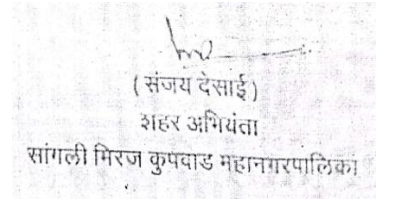 ( संजय देसाई )
शहर अभियंता
सांगली मिरज कुपवाड महानगरपालिका